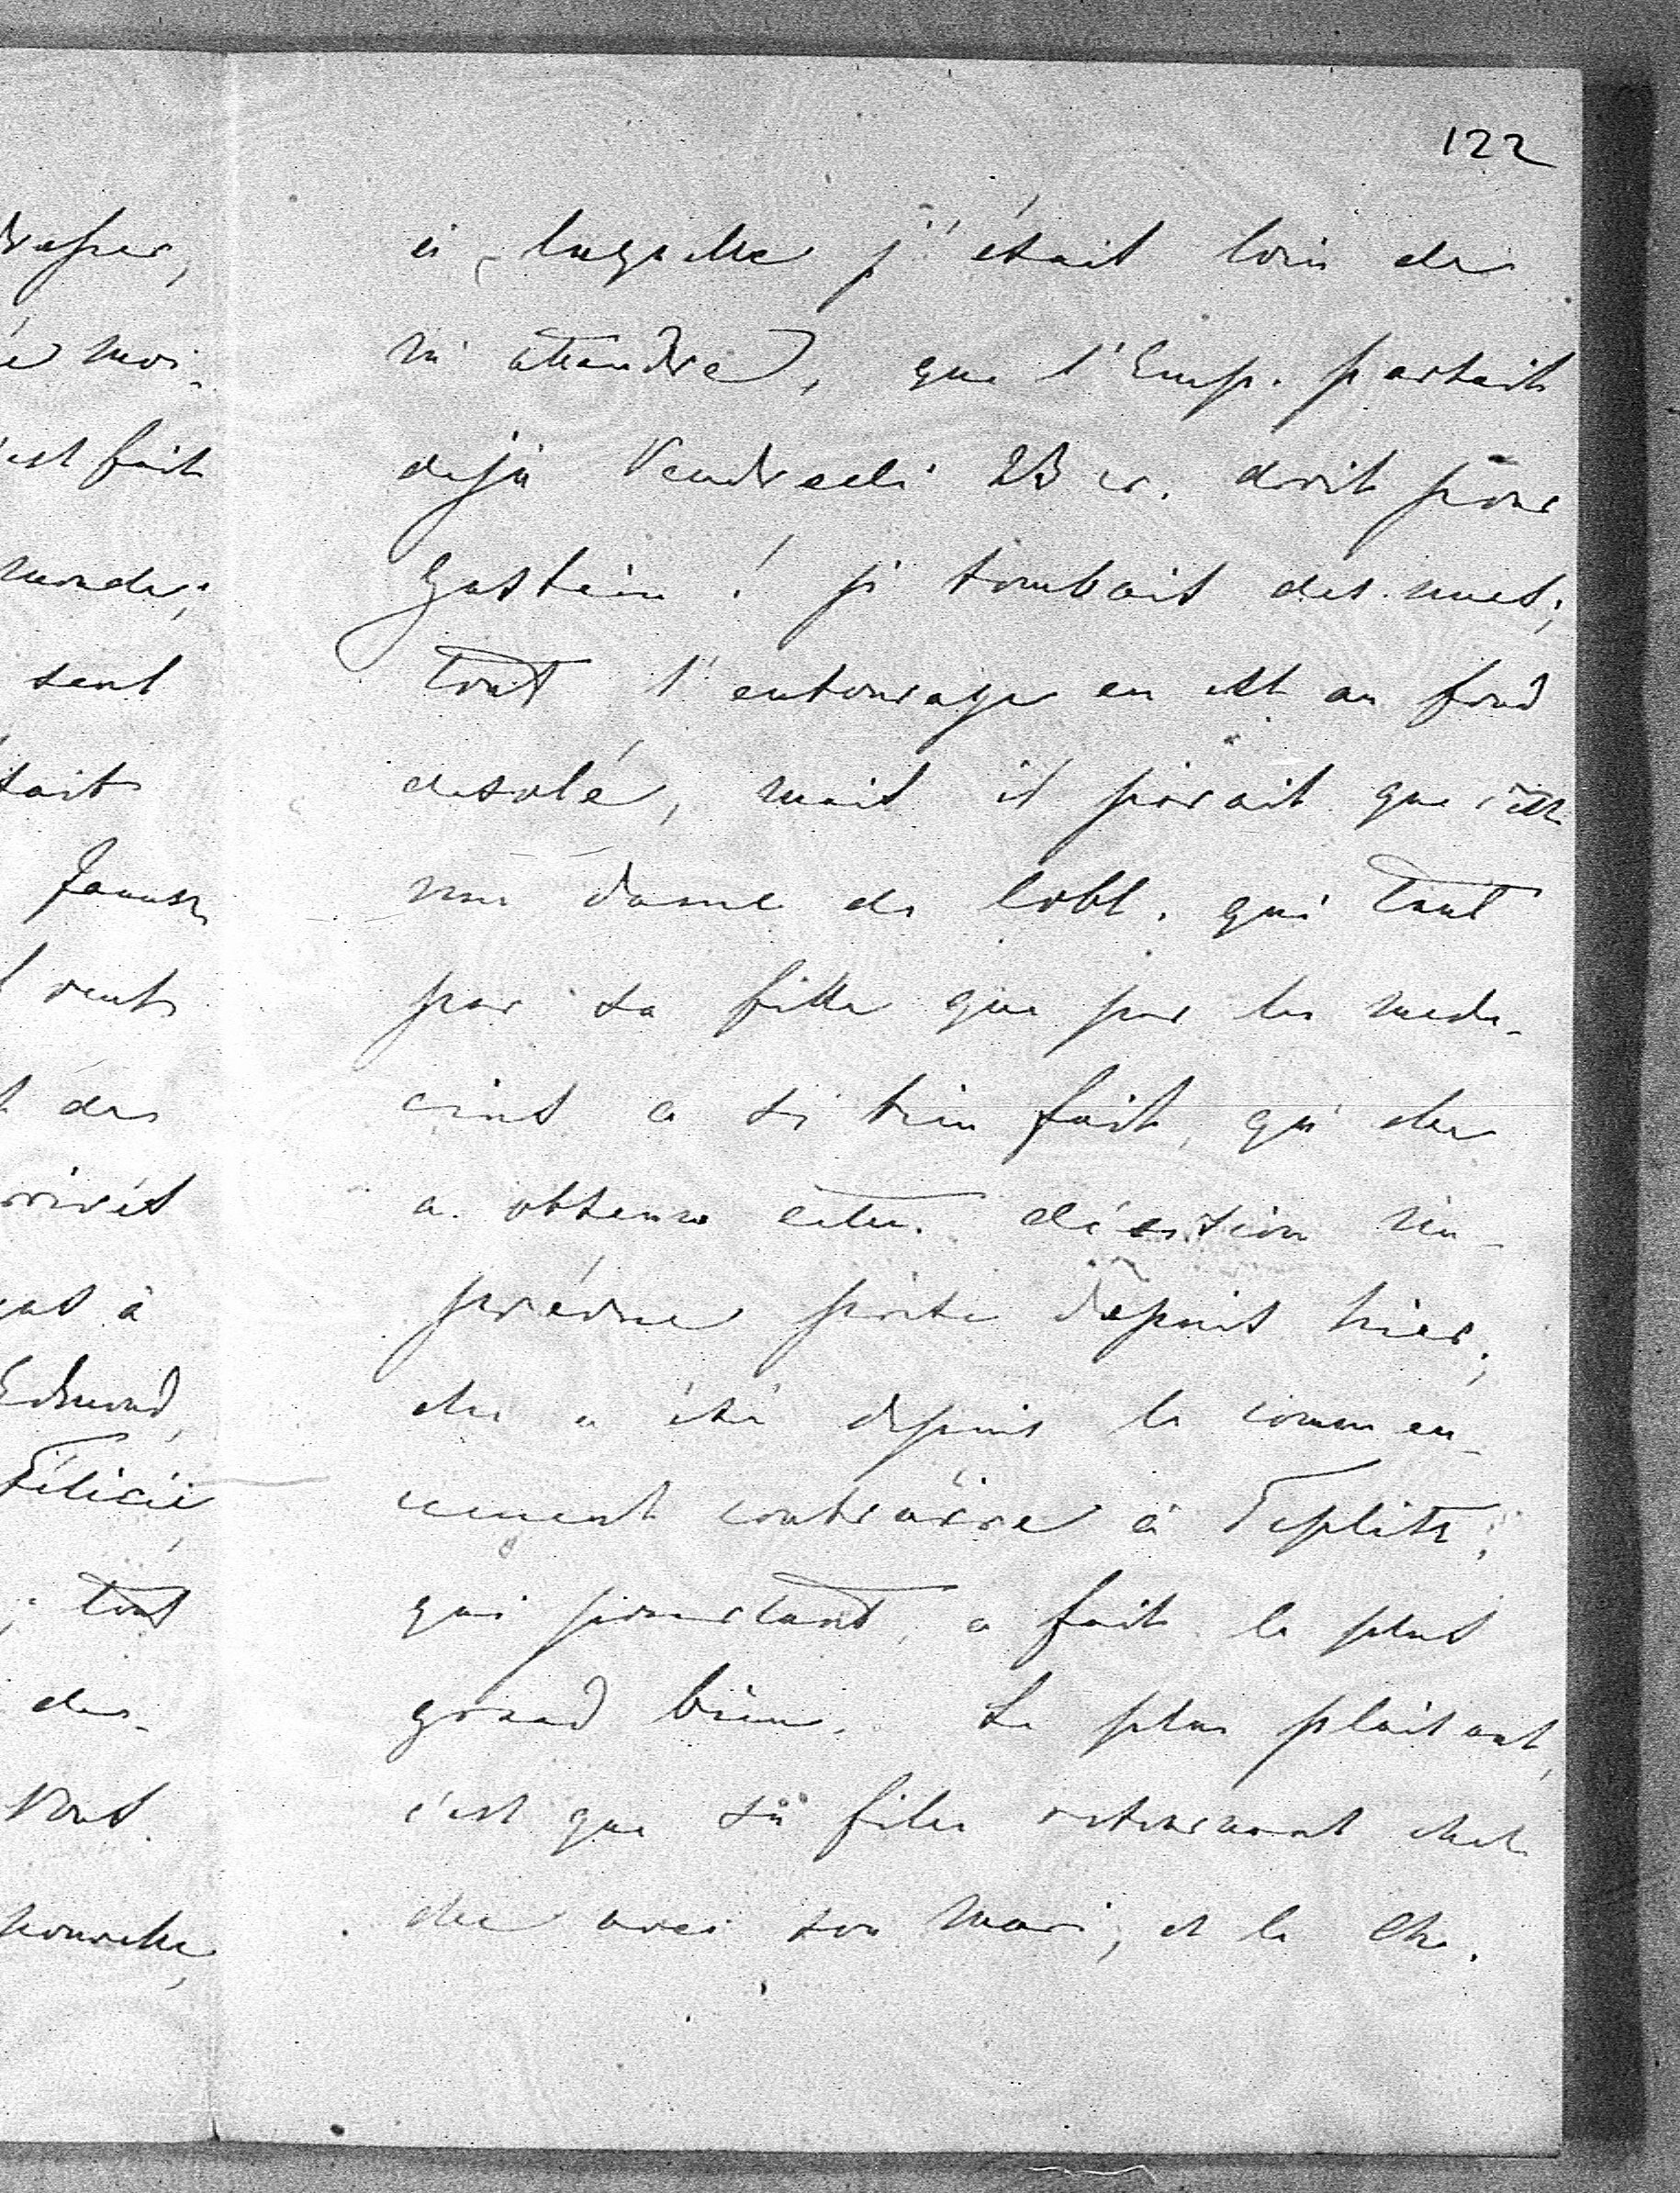 122
à laquelle j'étais loin de
m'attendre, que l'Emp. partait
dejà Vendredi 23 cr. droit pour
Gastein! je tombais des nues;
tout l'entourage en est au fond
desolé, mais il parait que c'est
une dame de Cobl. qui tant
par sa fille que par les mede-
cins a si bien fait, qu'elle
a obtenu cette décision im-
prévue prise depuis hier;
elle a été depuis le commen-
cement contraire à Teplitz,
qui pourtant, a fait le plus
grand bien. Le plus plaisant,
c'est que sa fille retournant chez
elle avec son mari, et la Ehe.
dresser,
é moi-
est fait
monde;
sent
tait
Janusch
veut
des
rrivés
pas à
Edmond,
Félicie,
tous
des-
Vous
nouvelle,